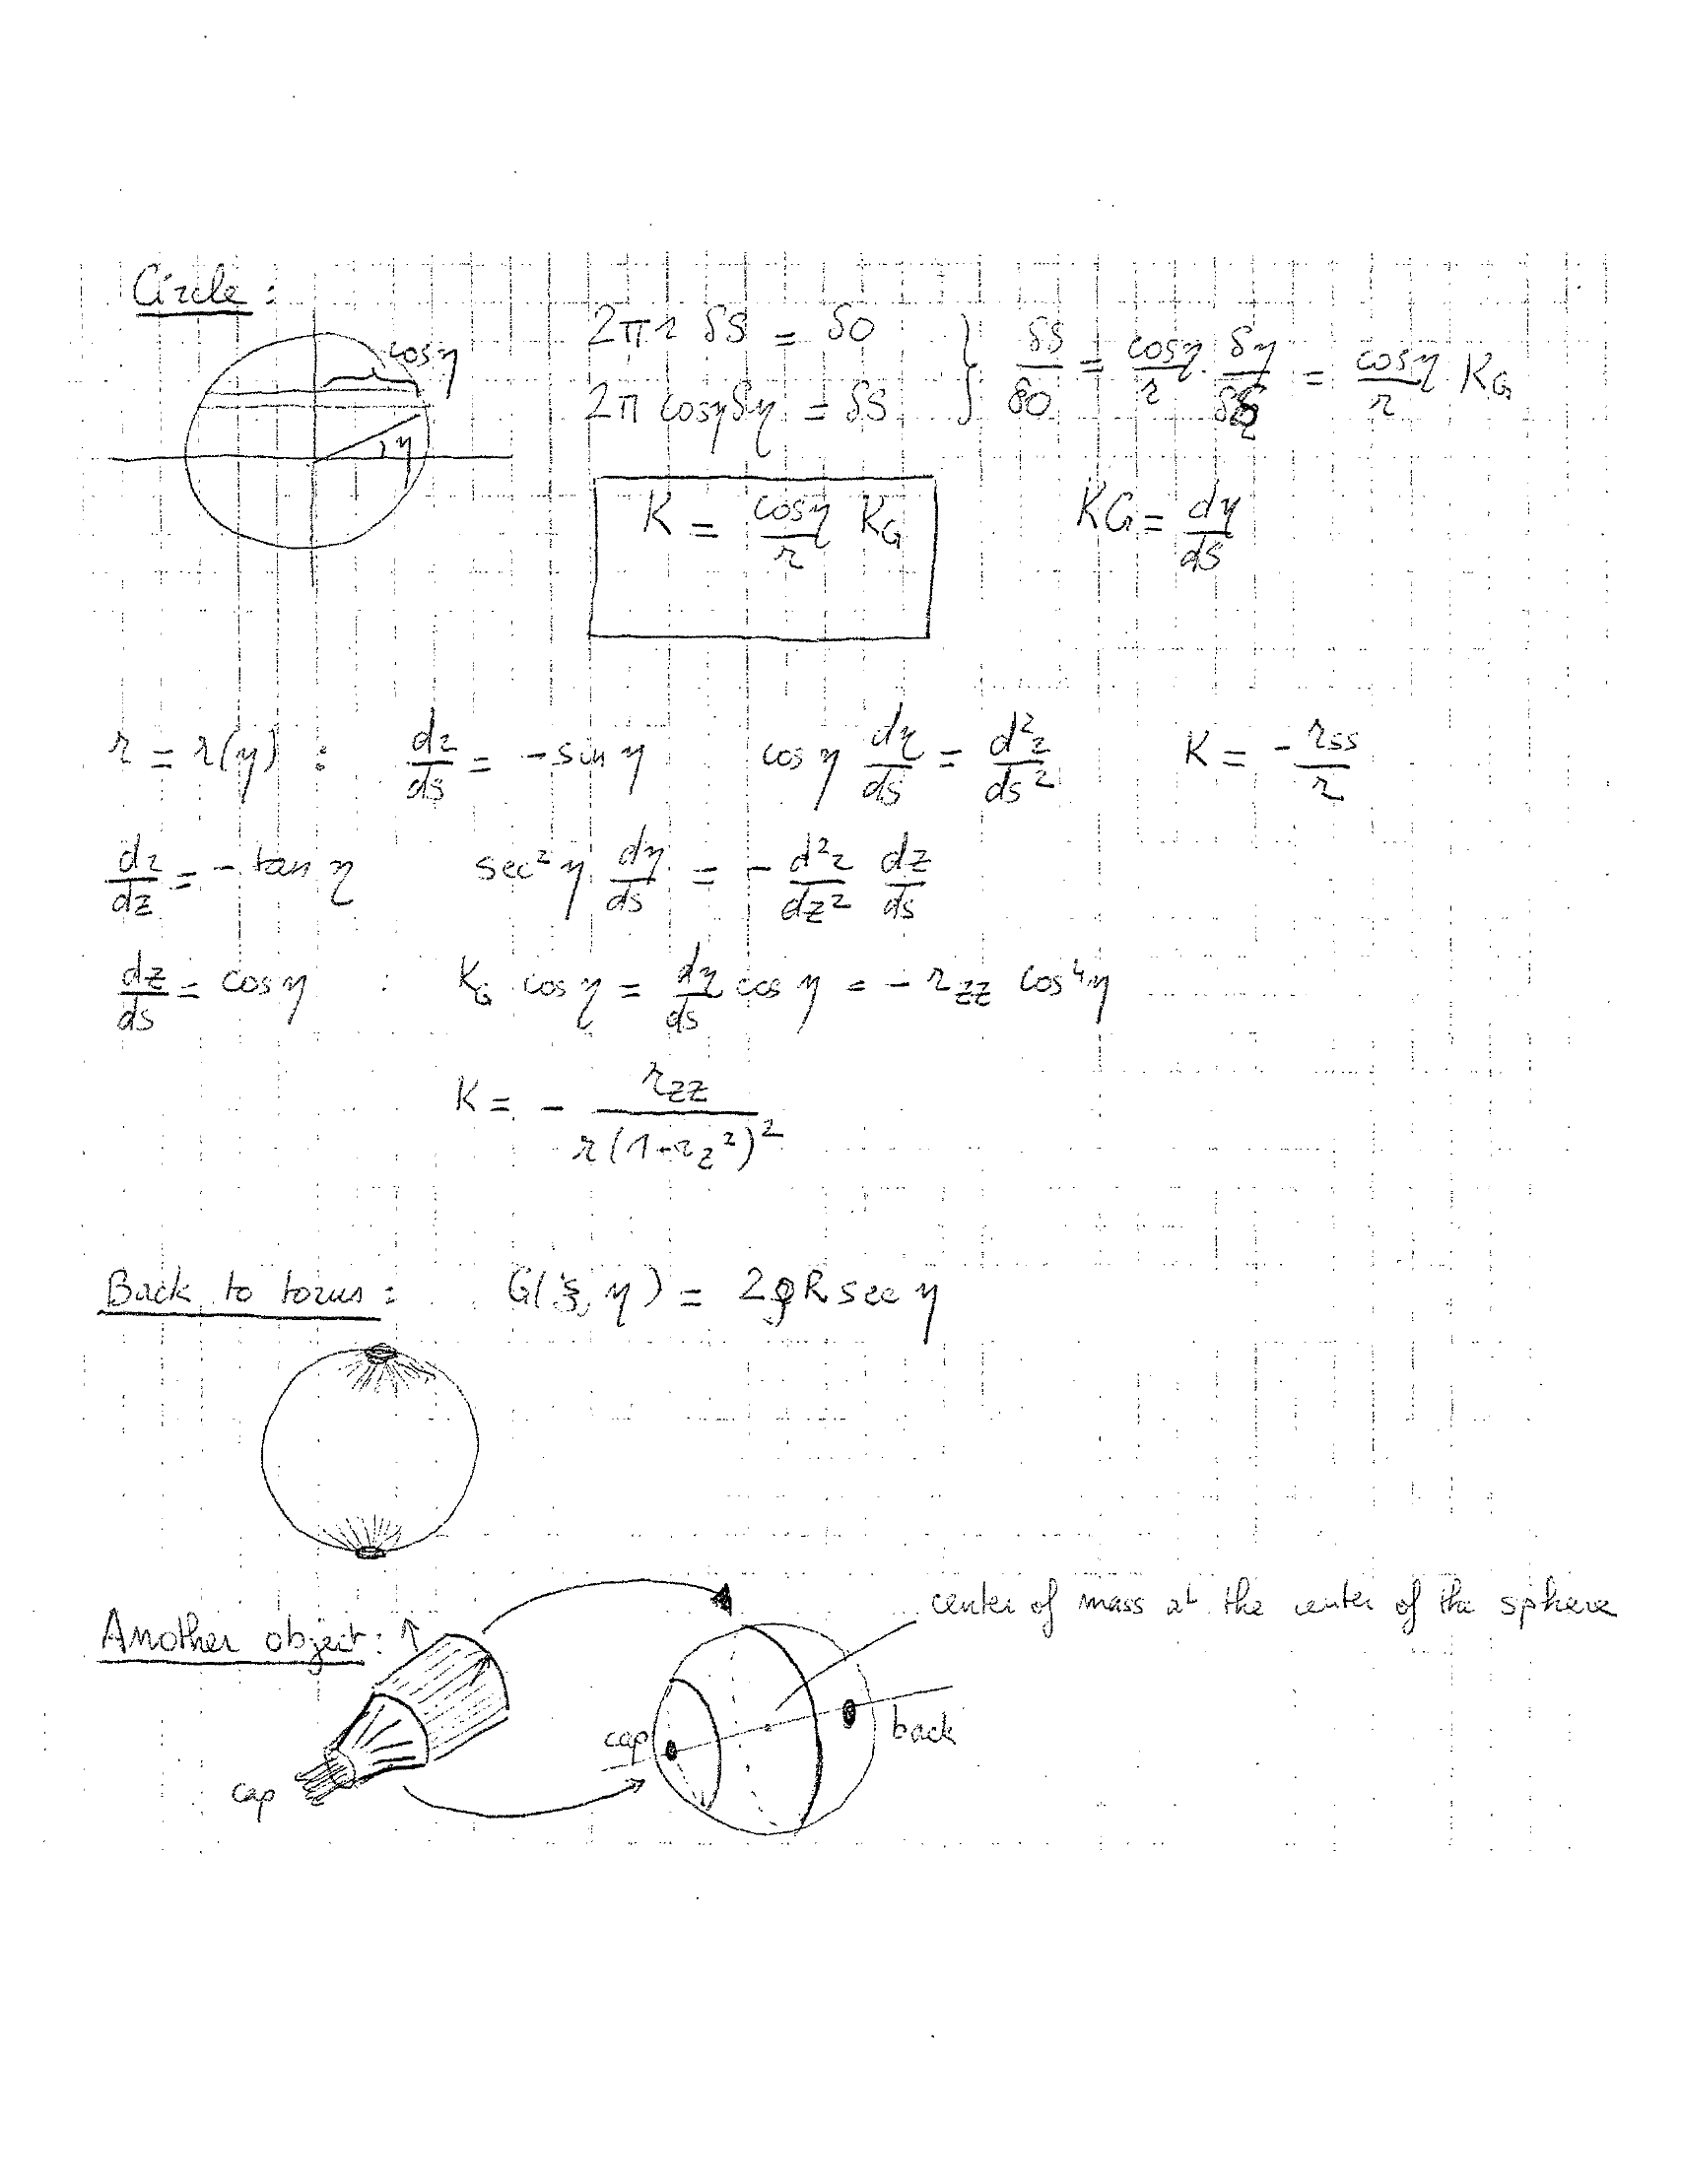 Circle:
cos η
η
2πr δs = δO
2π cosη δη = δS
} δS/δO = cosη/r · δη/δs = cosη/r K_G
K = cosη/r K_G
KG = dη/ds
r = r(η) : dr/ds = -sin η cos η dη/ds = d²r/ds² K = - r_ss/r
dr/dz = - tan η sec² η dη/ds = - d²r/dz² dz/ds
dz/ds = cos η : K_G cos η = dη/ds cos η = - r_zz cos⁴η
K = - r_zz / r(1+r_z²)²
Back to torus: G(ξ, η) = 2ρR sec η
center of mass at the center of the sphere
Another object:
cap
back
cap